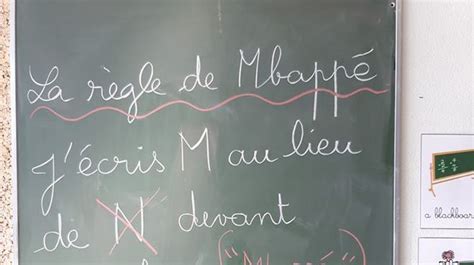 La règle de Mbappé
J'écris M au lieu
de N devant
("Mbappé")
a blackboard